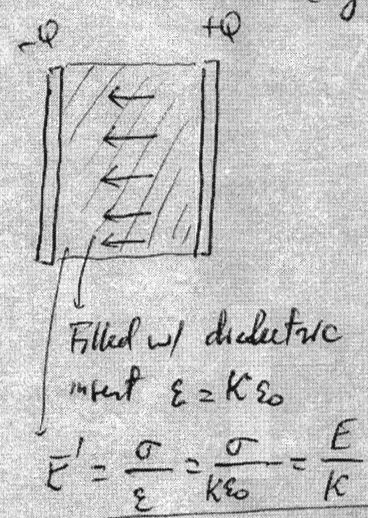 -Q +Q
Filled w/ dielectric
insert ε = Kε₀
E' = σ/ε = σ/Kε₀ = E/K